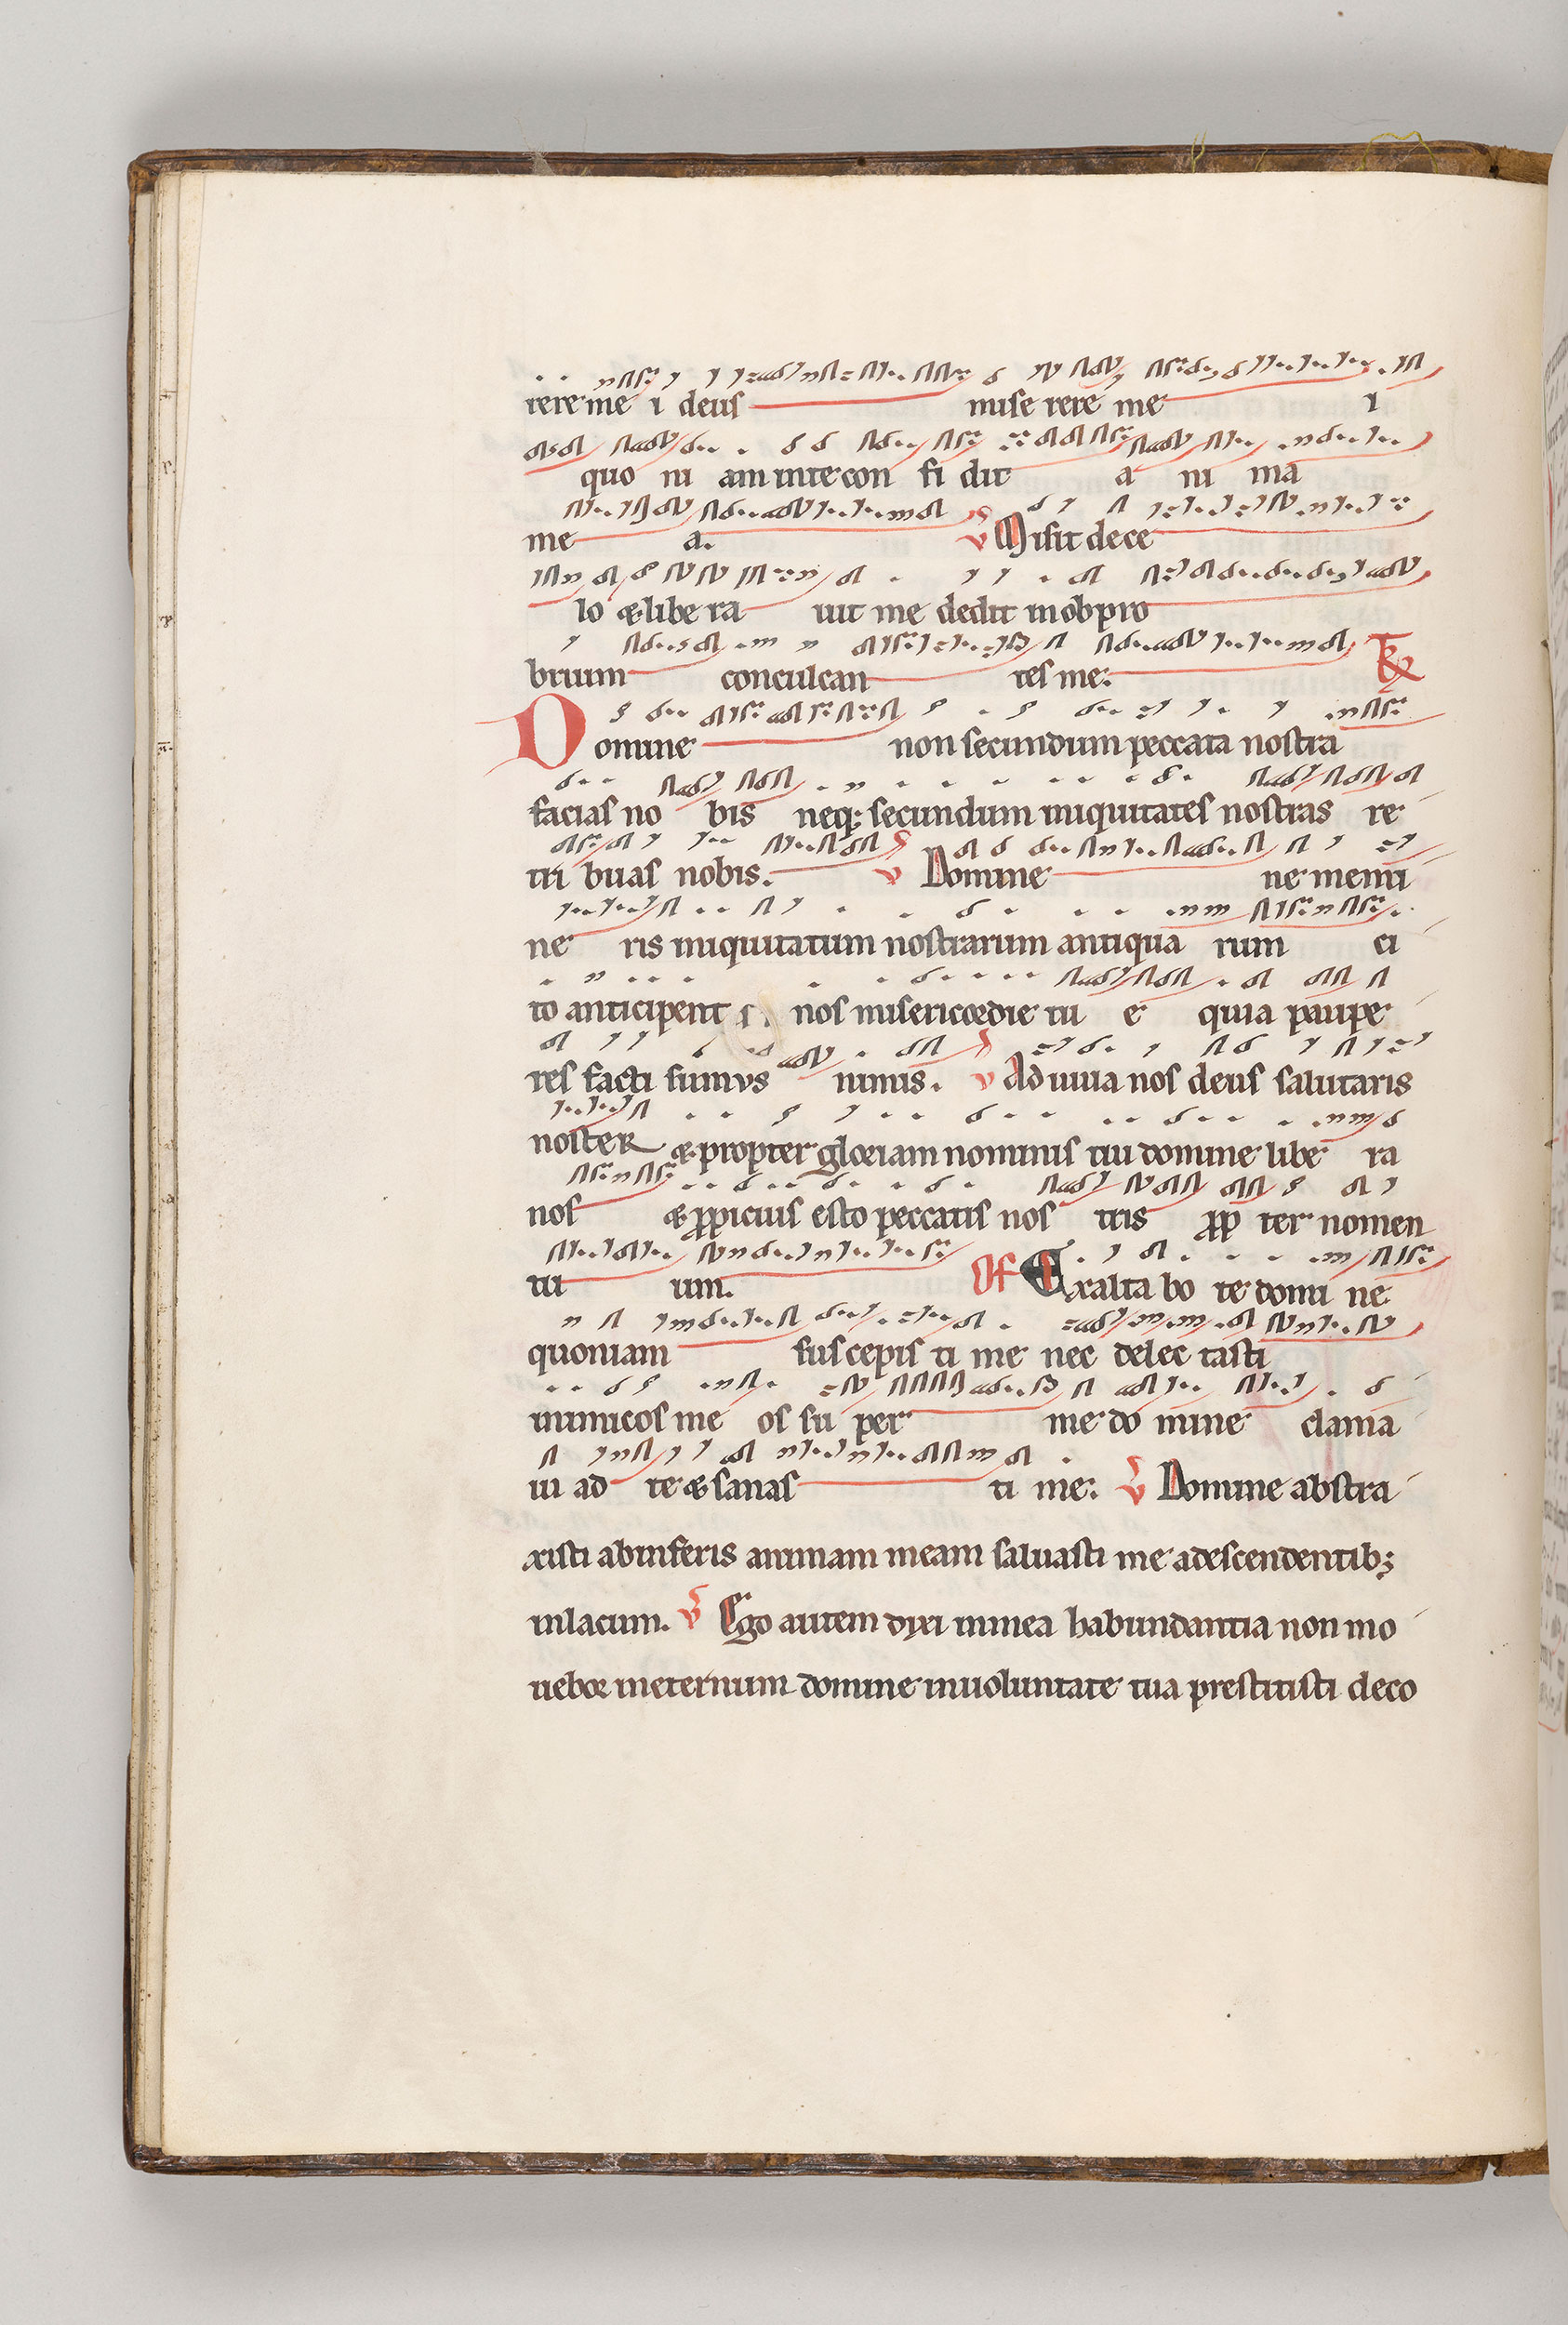 rere me i deus mise rere me i
quo ni am in te con fi dit a ni ma
me a. v Misit de ce
lo & libe ra uit me dedit in obpro
brium conculcan tes me: Tr
Domine non secundum peccata nostra
facias no bis neq; secundum iniquitates nostras re
tri buas nobis. v Domine ne memi
ne ris iniquitatum nostrarum antiqua rum ci
to anticipent nos misericordie tu e quia paupe
res facti sumus nimis. v Adiuua nos deus salutaris
noster & propter gloriam nominis tui domine libe ra
nos & ppicius esto peccatis nos tris pp ter nomen
tu um. Of Exalta bo te domi ne
quoniam suscepis ti me nec delec tasti
inimicos me os su per me do mine clama
ui ad te & sanas ti me: v Domine abstra
xisti abinferis animam meam saluasti me adescendentib;
inlacum. v Ego autem dixi inmea habundantia non mo
uebor ineternum domine inuoluntate tua prestitisti deco